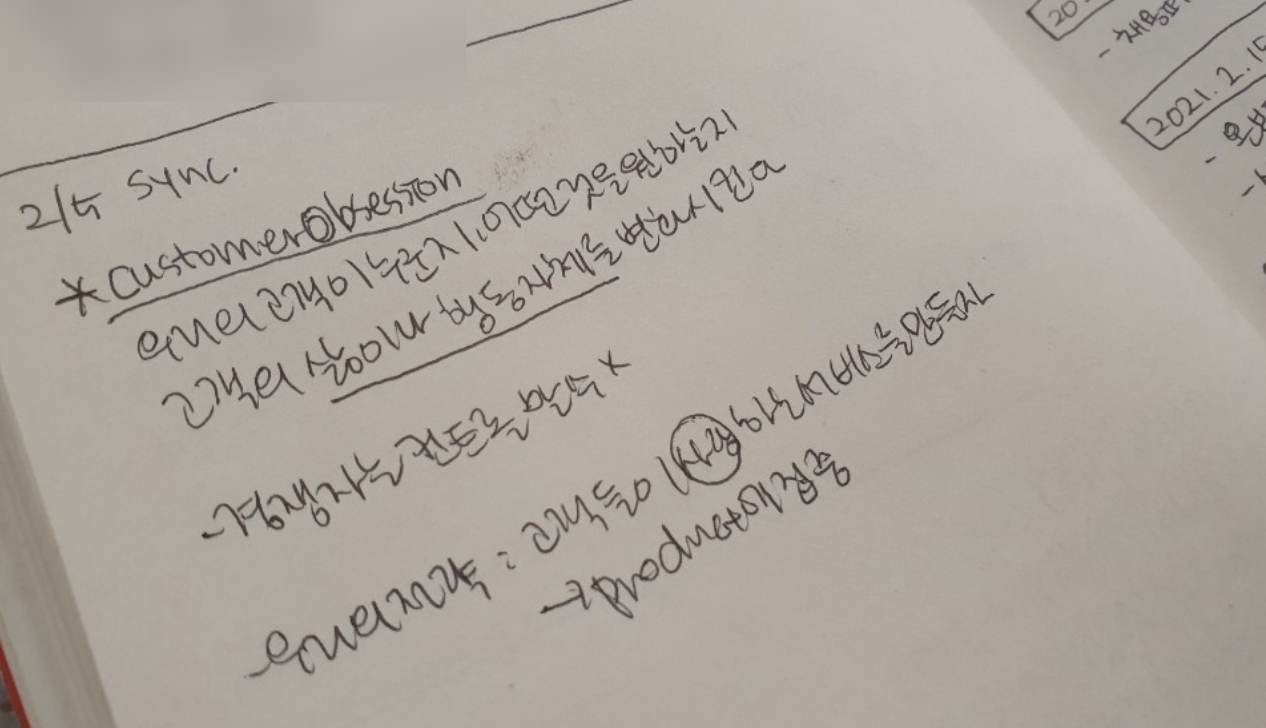 2/5 Sync.
* Customer Obsession
우리의 고객이 누군지, 어떤것을 원하는지
고객의 삶이나 행동자체를 변화시킨다
- 경쟁자는 컨트롤 변수 x
- 우리의 전략 : 고객들이 사랑하는 서비스를 만들자
→ product에 집중
2021. 2. 15